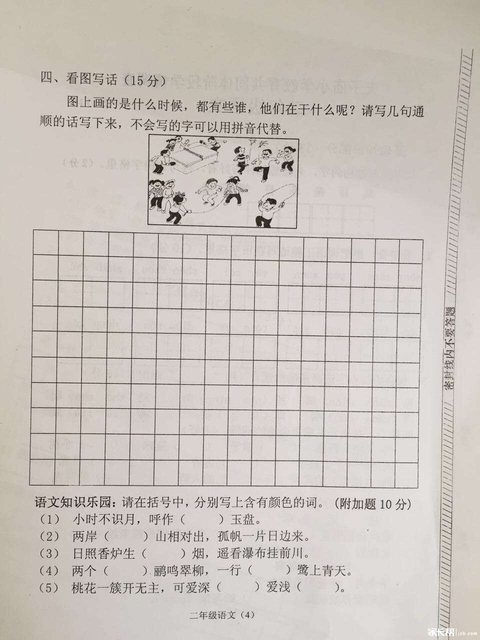 四、看图写话(15分)
图上画的是什么时候，都有些谁，他们在干什么呢？请写几句通
顺的话写下来，不会写的字可以用拼音代替。
密封线内不要答题
语文知识乐园：请在括号中，分别写上含有颜色的词。(附加题10分)
(1) 小时不识月，呼作（ ）玉盘。
(2) 两岸（ ）山相对出，孤帆一片日边来。
(3) 日照香炉生（ ）烟，遥看瀑布挂前川。
(4) 两个（ ）鹂鸣翠柳，一行（ ）鹭上青天。
(5) 桃花一簇开无主，可爱深（ ）爱浅（ ）。
二年级语文（4）